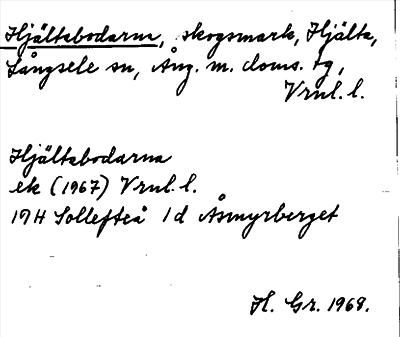 Hjältabodarna, skogsmark, Hjälta,
Långsele sn, Ång. m. doms. sg,
Vrnl. l.
Hjältabodarna
ek (1967) Vrnl. l.
19H Sollefteå 1d Åsmyrberget
H. Gr. 1968.